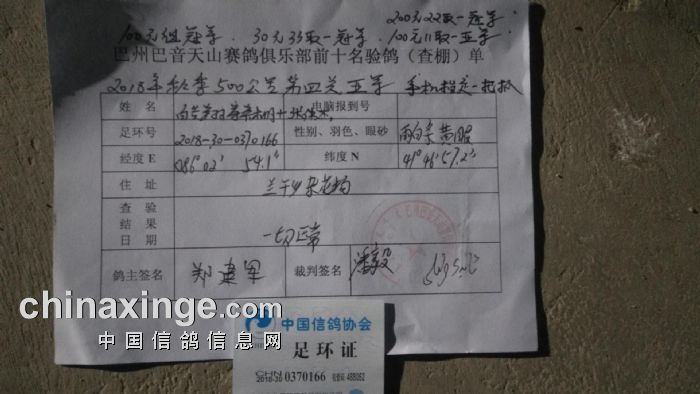 200元22取一冠军
100元组冠军. 30元33取一冠军. 100元11取一亚军
巴州巴音天山赛鸽俱乐部前十名验鸽（查棚）单
2018年秋季500公里第四关亚军 手机指定一把抓
姓 名 电脑报到号
足环号 2018-30-0370166 性别、羽色、眼砂 雨白条 黄眼
经度E 086°02′ 54.1″ 纬度N 41°46′57.2″
住 址 兰干乡
查 验
结 果 一切正常
日 期
鸽主签名 郑建军 裁判签名 潘毅
chinaxinge.com
中国信鸽信息网
中国信鸽协会
足环证
2018-30 0370166